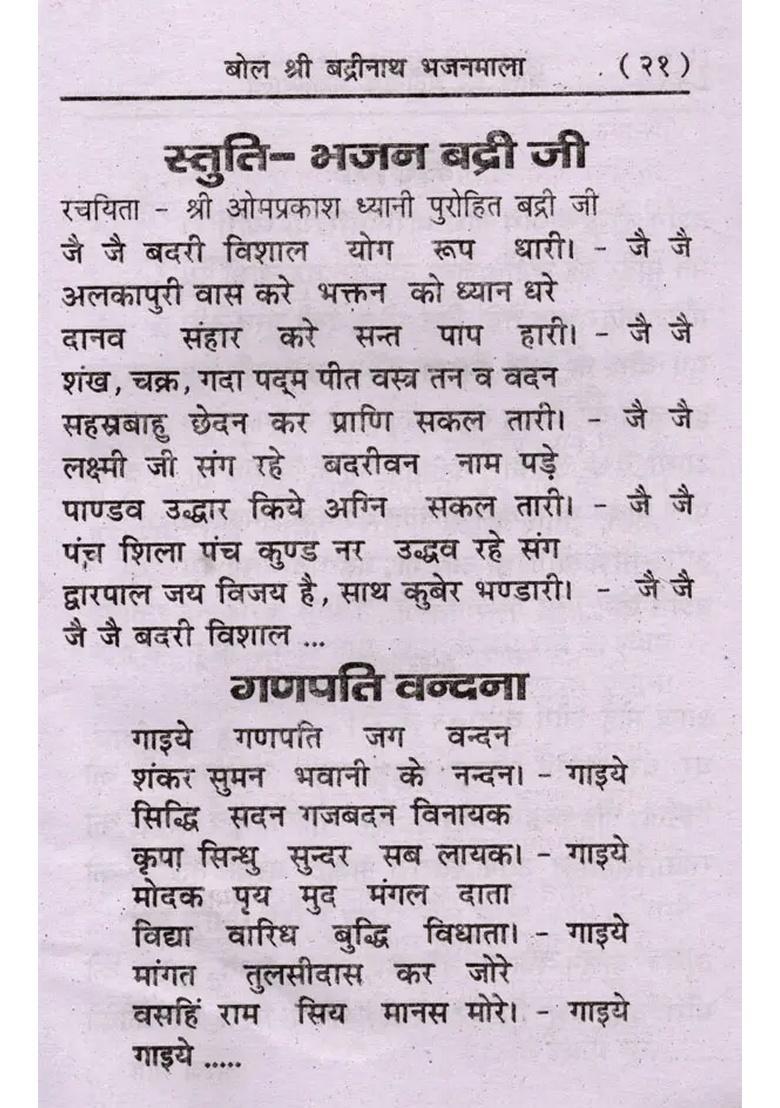 बोल श्री बद्रीनाथ भजनमाला (२१)
स्तुति- भजन बद्री जी
रचयिता - श्री ओमप्रकाश ध्यानी पुरोहित बद्री जी
जै जै बदरी विशाल योग रूप धारी। - जै जै
अलकापुरी वास करे भक्तन को ध्यान धरे
दानव संहार करे सन्त पाप हारी। - जै जै
शंख, चक्र, गदा पद्म पीत वस्त्र तन व वदन
सहस्रबाहु छेदन कर प्राणि सकल तारी। - जै जै
लक्ष्मी जी संग रहे बदरीवन नाम पड़े
पाण्डव उद्धार किये अग्नि सकल तारी। - जै जै
पंच शिला पंच कुण्ड नर उद्धव रहे संग
द्वारपाल जय विजय है, साथ कुबेर भण्डारी। - जै जै
जै जै बदरी विशाल ...
गणपति वन्दना
गाइये गणपति जग वन्दन
शंकर सुमन भवानी के नन्दन। - गाइये
सिद्धि सदन गजबदन विनायक
कृपा सिन्धु सुन्दर सब लायक। - गाइये
मोदक पृय मुद मंगल दाता
विद्या वारिध बुद्धि विधाता। - गाइये
मांगत तुलसीदास कर जोरे
वसहिं राम सिय मानस मोरे। - गाइये
गाइये .....